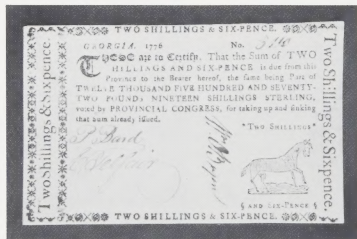 TWO SHILLINGS & SIX-PENCE.
GEORGIA. 1776 No.
THESE are to Certify, That the Sum of TWO
SHILLINGS AND SIX-PENCE is due from this
Province to the Bearer hereof, the same being Part of
TWELVE THOUSAND FIVE HUNDRED AND SEVENTY-
TWO POUNDS NINETEEN SHILLINGS STERLING,
voted by PROVINCIAL CONGRESS, for taking up and sinking
that sum already issued.
"TWO SHILLINGS
AND SIX-PENCE
TWO SHILLINGS & SIX-PENCE.
Two Shillings & Sixpence.
Two Shillings & Sixpence.